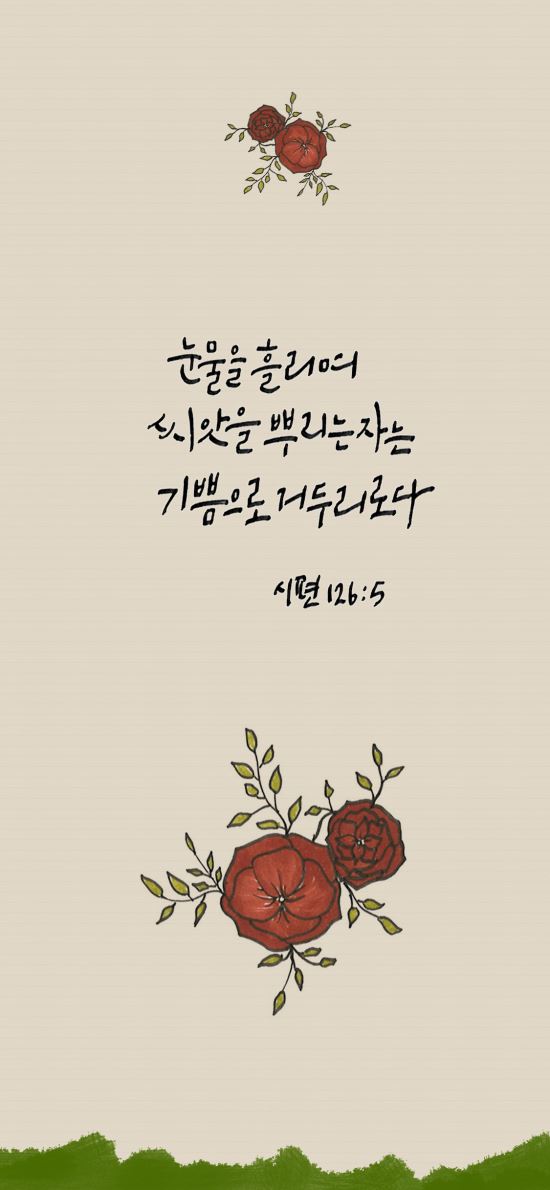 눈물을 흘리며
씨앗을 뿌리는자는
기쁨으로 거두리로다
시편 126:5